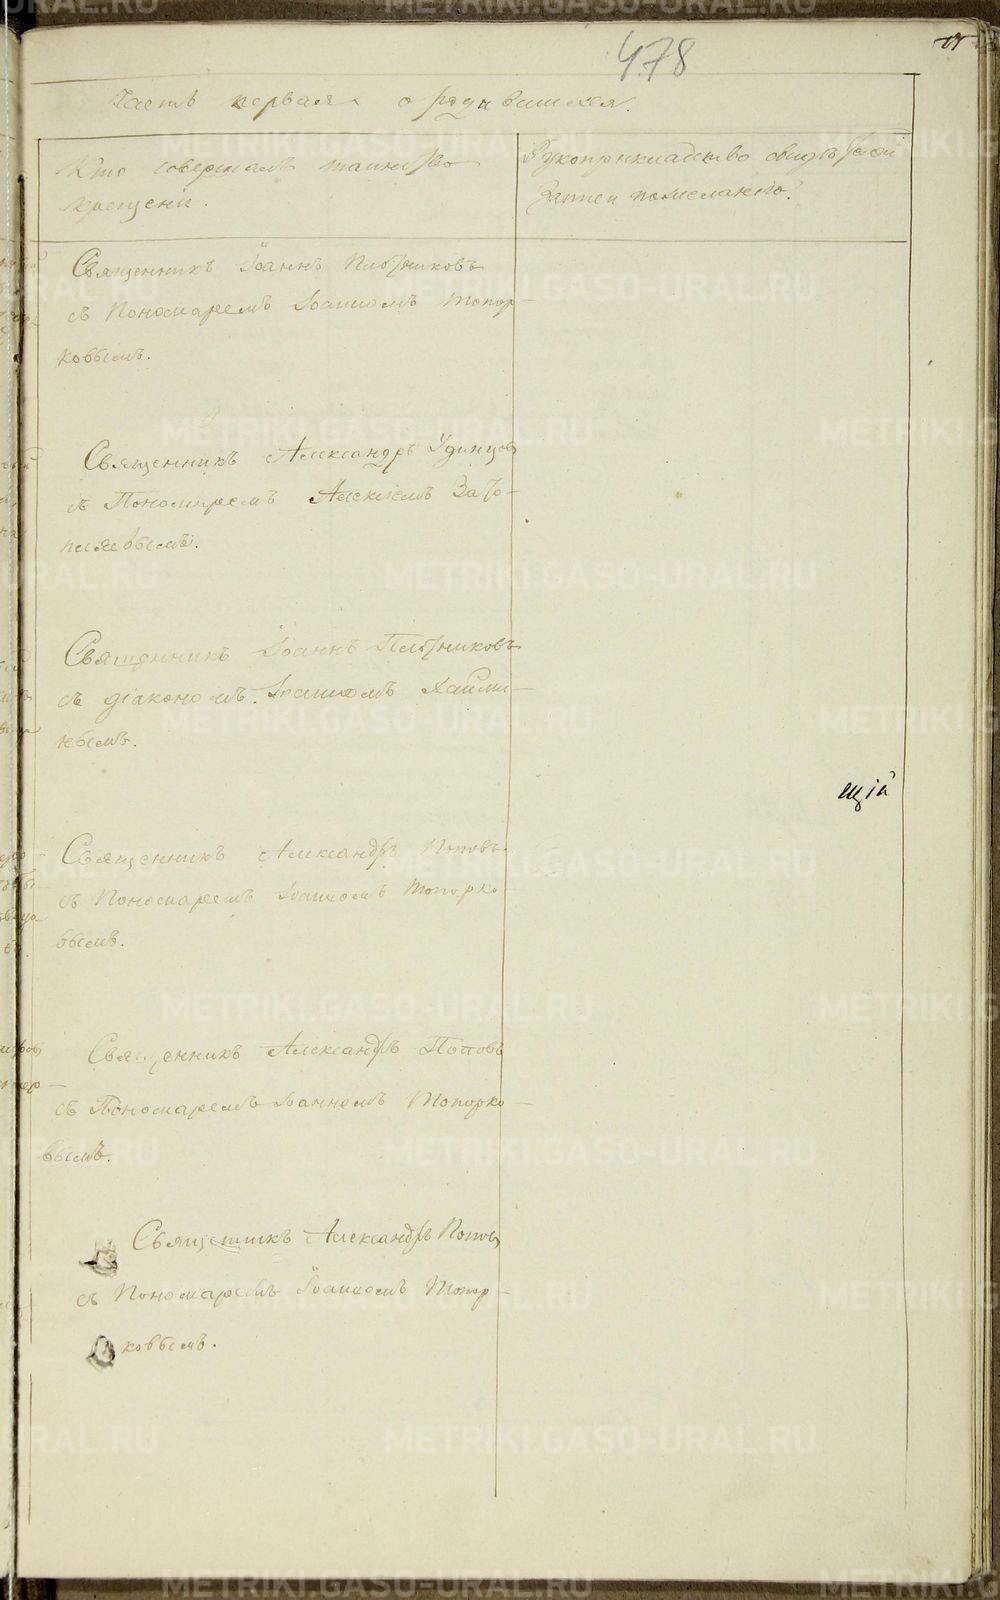 478
Часть первая о родившихся.
Кто совершалъ таинство
крещенія.
Рукоприкладство свидѣтелей
записи по желанію.
Священникъ Іоаннъ Плотниковъ
съ Пономаремъ Іоанномъ Топор-
ковымъ.
Священникъ Александръ Удинцов
съ Пономаремъ Алексіемъ Зато-
пляевымъ.
Священникъ Іоаннъ Плотниковъ
съ діакономъ Іоанномъ Хаими-
нымъ.
щій
Священникъ Александръ Поповъ
съ Пономаремъ Іоанномъ Топорко-
вымъ.
Священникъ Александръ Поповъ
съ Пономаремъ Іоанномъ Топорко-
вымъ.
Священникъ Александръ Поповъ
съ Пономаремъ Іоанномъ Топор-
ковымъ.
METRIKI.GASO-URAL.RU